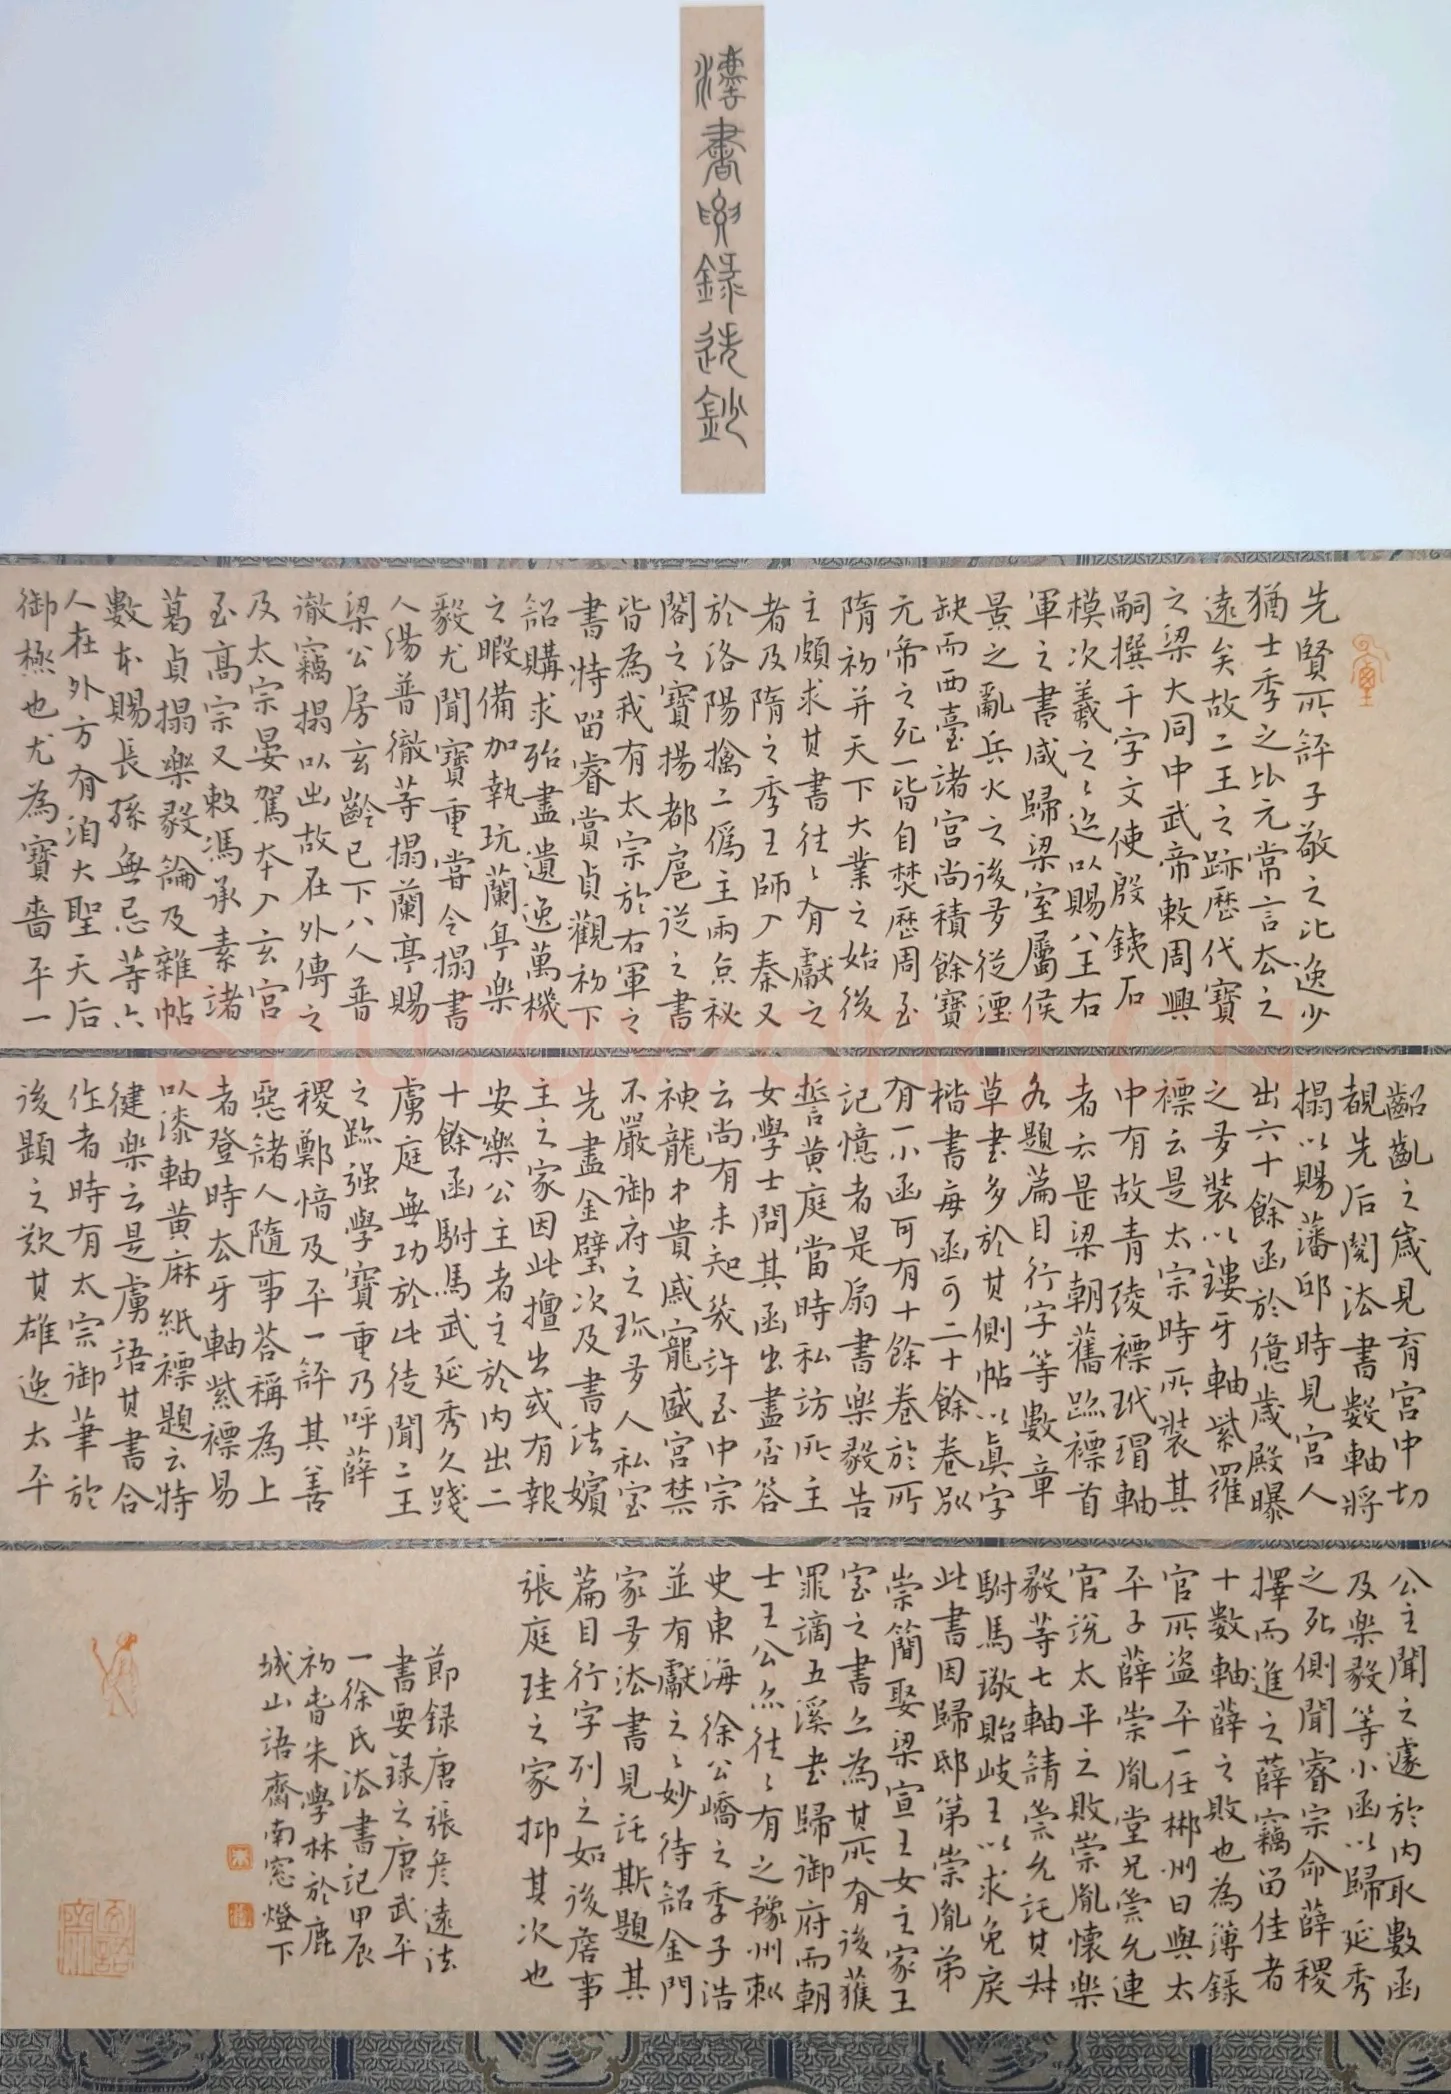 法書要錄選鈔
先賢所評子敬之比逸少
猶士季之比元常言去之
遠矣故二王之跡歷代寶
之梁大同中武帝敕周興
嗣撰千字文使殷鐵石
模次羲之之迹以賜八王右
軍之書咸歸梁室屬侯
景之亂兵火之後多從湮
缺而西臺諸宮尚積餘寶
元帝之死一皆自焚歷周至
隋初并天下大業之始後
主頗求其書往々有獻之
者及隋之季王師入秦又
於洛陽擒二偽主兩京秘
閣之寶揚都扈從之書
皆為我有太宗於右軍之
書特留睿賞貞觀初下
詔購求殆盡遺逸萬機
之暇備加執玩蘭亭樂
毅尤聞寶重嘗令搨書
人湯普徹等搨蘭亭賜
梁公房玄齡已下八人普
徹竊搨以出故在外傳之
及太宗晏駕本入玄宮
至高宗又敕馮承素諸
葛貞搨樂毅論及雜帖
數本賜長孫無忌等六
人在外方有洎大聖天后
御極也尤為寶嗇平一
齠齓之歲見育宮中切
覩先后閱法書數軸將
搨以賜藩邸時見宮人
出六十餘函於億歲殿曝
之多裝以鏤牙軸紫羅
褾云是太宗時所裝其
中有故青綾褾玳瑁軸
者云是梁朝舊跡褾首
各題篇目行字等數章
草書多於其側帖以真字
楷書每函可二十餘卷別
有一小函可有十餘卷於所
記憶者是扇書樂毅告
誓黃庭當時私訪所主
女學士問其函出盡否答
云尚有未知幾許至中宗
神龍中貴戚寵盛宮禁
不嚴御府之珍多入私室
先盡金璧次及書法嬪
主之家因此擅出或有報
安樂公主者主於內出二
十餘函駙馬武延秀久踐
虜庭無功於此徒聞二王
之跡强學寶重乃呼薛
稷鄭愔及平一評其善
惡諸人隨事答稱為上
者登時去牙軸紫褾易
以漆軸黃麻紙褾題云特
健樂云是虜語其書合
作者時有太宗御筆於
後題之歎其雄逸太平
公主聞之遽於內取數函
及樂毅等小函以歸延秀
之死側聞睿宗命薛稷
擇而進之薛竊留佳者
十數軸薛之敗也為簿錄
官所盜平一任郴州日與太
平子薛崇胤堂兄崇允連
官說太平之敗崇胤懷樂
毅等七軸請崇允託其叔
駙馬璥貽岐王以求免戾
此書因歸邸第崇胤弟
崇簡娶梁宣王女主家王
室之書亦為其所有後獲
罪謫五溪書歸御府而朝
士王公亦往々有之豫州刺
史東海徐公嶠之季子浩
並有獻之之妙待詔金門
家多法書見託斯題其
篇目行字列之如後詹事
張庭珪之家抑其次也
節錄唐張彥遠法
書要錄之唐武平
一徐氏法書記甲辰
初旹朱學林於鹿
城山語齋南窓燈下